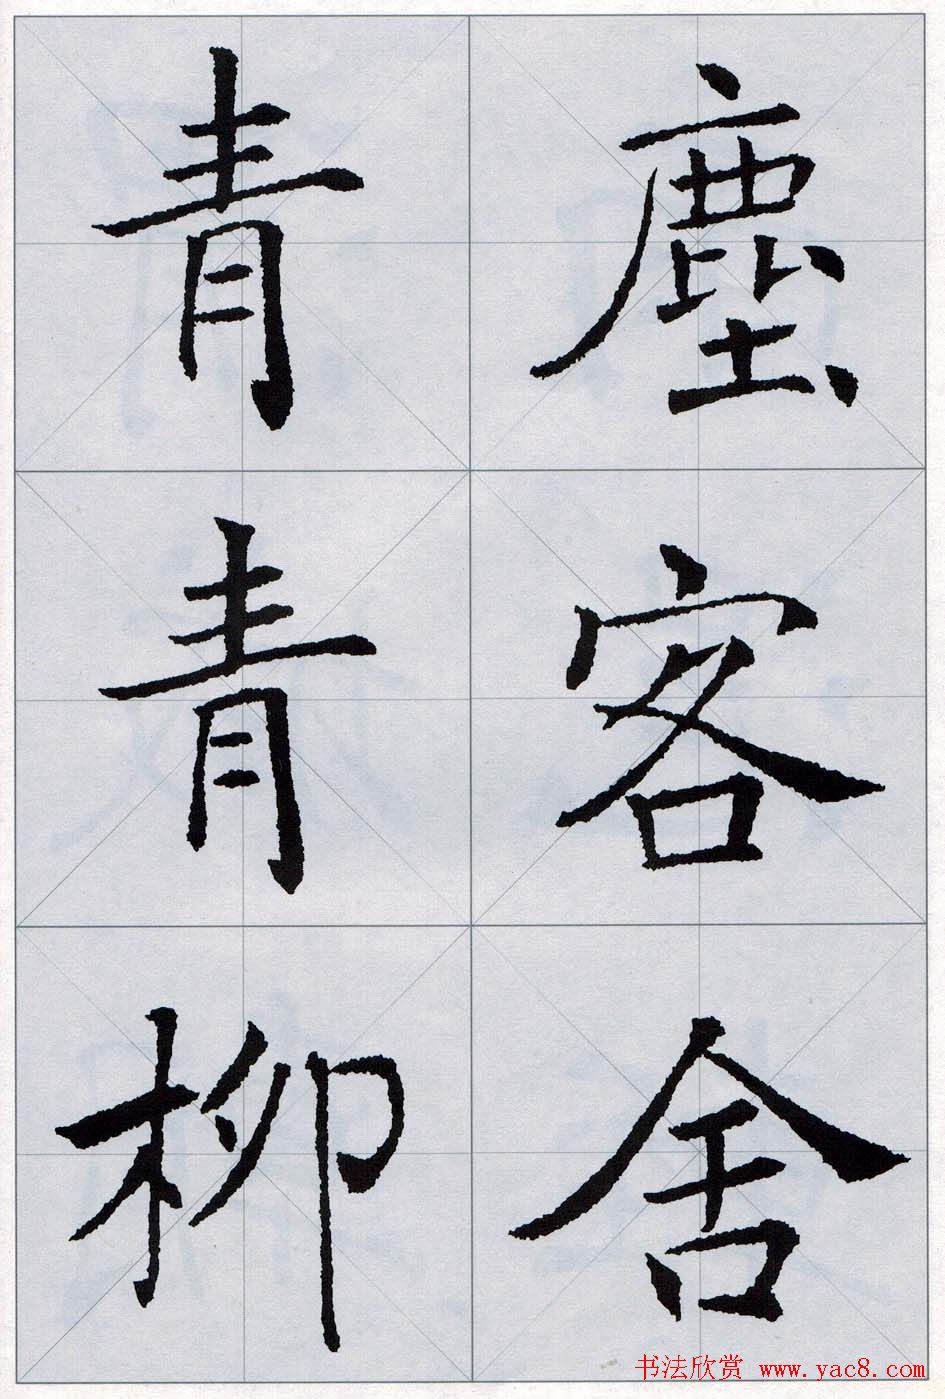 塵客舍
青青柳
书法欣赏 www.yac8.com